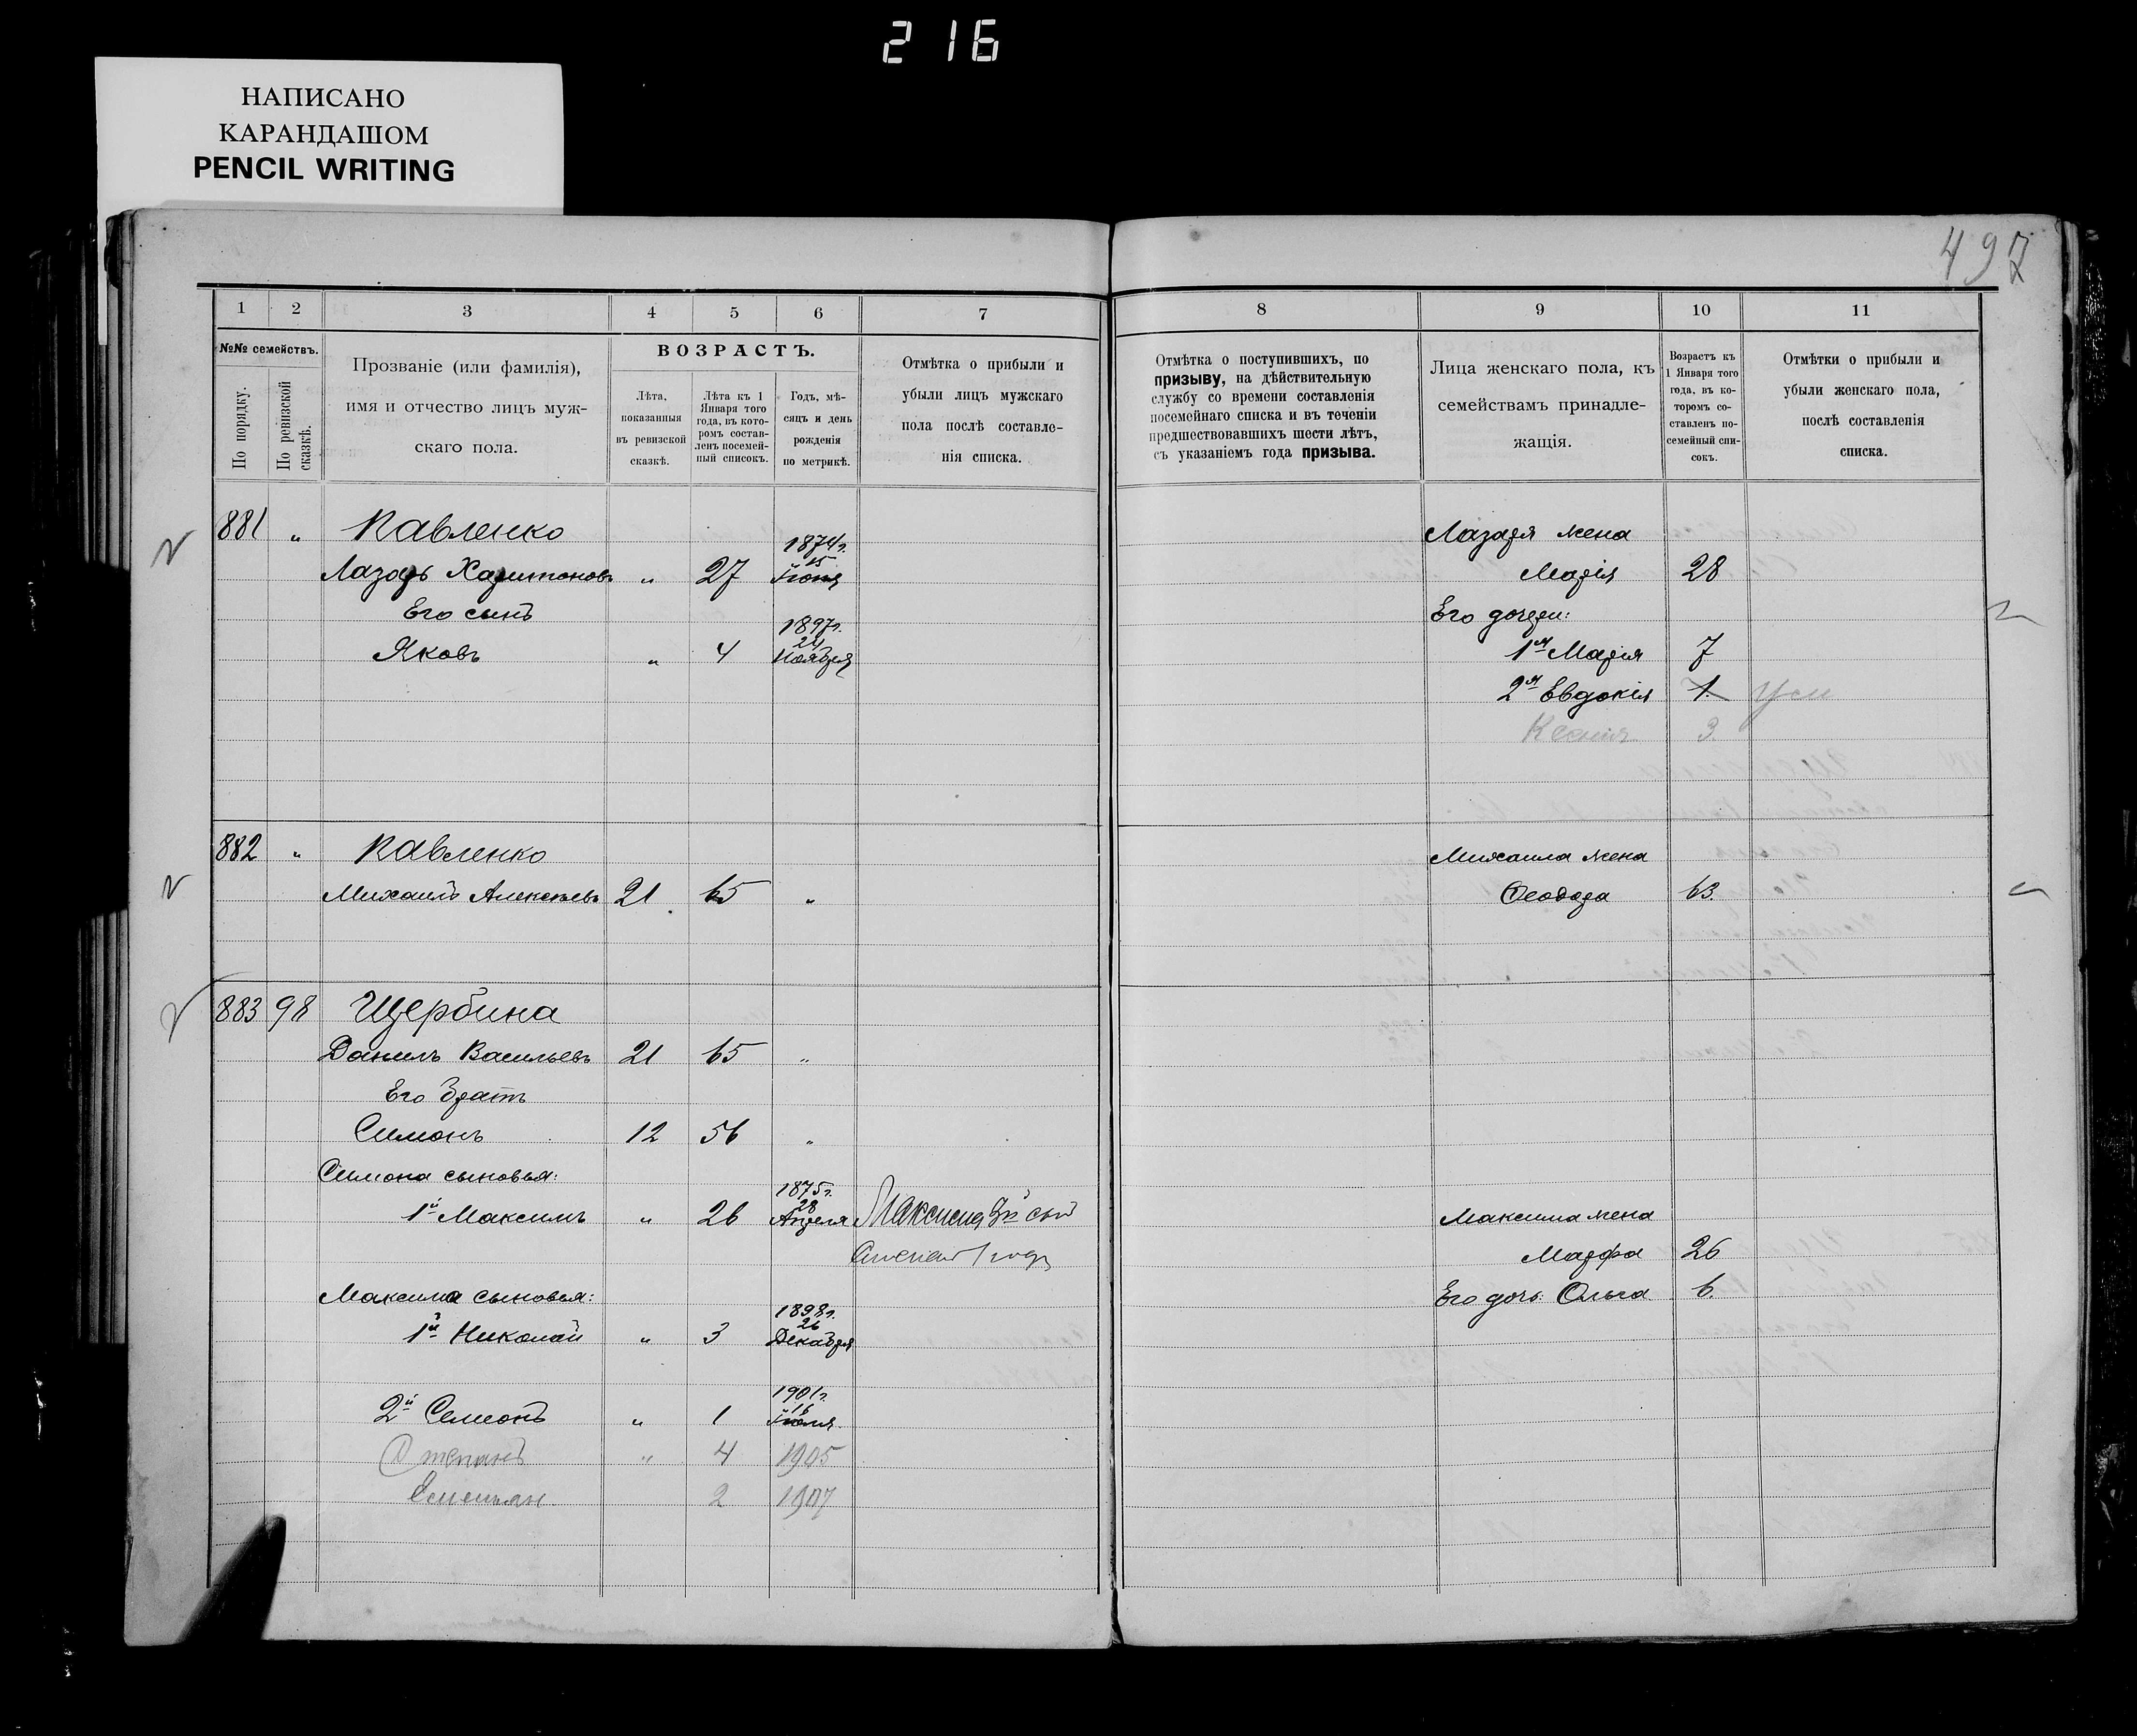 216
НАПИСАНО
КАРАНДАШОМ
PENCIL WRITING
497
1 2 3 4 5 6 7 8 9 10 11
№№ семействъ.
По порядку.
По ревизской сказкѣ.
Прозваніе (или фамилія),
имя и отчество лицъ муж-
скаго пола.
ВОЗРАСТЪ.
Лѣта,
показанныя
въ ревизской
сказкѣ.
Лѣта къ 1
Января того
года, въ кото-
ромъ состав-
ленъ посемей-
ный списокъ.
Годъ, мѣ-
сяцъ и день
рожденія
по метрикѣ.
Отмѣтка о прибыли и
убыли лицъ мужскаго
пола послѣ составле-
нія списка.
Отмѣтка о поступившихъ, по
призыву, на дѣйствительную
службу со времени составленія
посемейнаго списка и въ теченіи
предшествовавшихъ шести лѣтъ,
съ указаніемъ года призыва.
Лица женскаго пола, къ
семействамъ принадле-
жащія.
Возрастъ къ
1 Января того
года, въ ко-
торомъ со-
ставленъ по-
семейный спи-
сокъ.
Отмѣтки о прибыли и
убыли женскаго пола,
послѣ составленія
списка.
881 „ Павленко Лазаря жена
1874г.
15
Лазарь Харитоновъ „ 27 Іюня Марія 28
Его сынъ Его дочери:
1897г.
24
Яковъ „ 4 Ноября 1я Марія 7
2я Евдокія 1.
Ксенія 3.
882 „ Павленко Михаила жена
Михаилъ Алексѣевъ 21 65 „ Ѳеодора 63.
883 98 Щербина
Данилъ Васильевъ 21 65 „
Его братъ
Симонъ 12 56 „
Симона сыновья:
1875г.
28
1й Максимъ „ 26 Апреля Максима 3й сын Максима жена
Марфа 26
Максима сыновья: Его дочь: Ольга 6.
1898г.
26
1й Николай „ 3 Декабря
1901г.
16
2й Семенъ „ 1 Іюля
Степанъ „ 4 1905
Емельян 2 1907